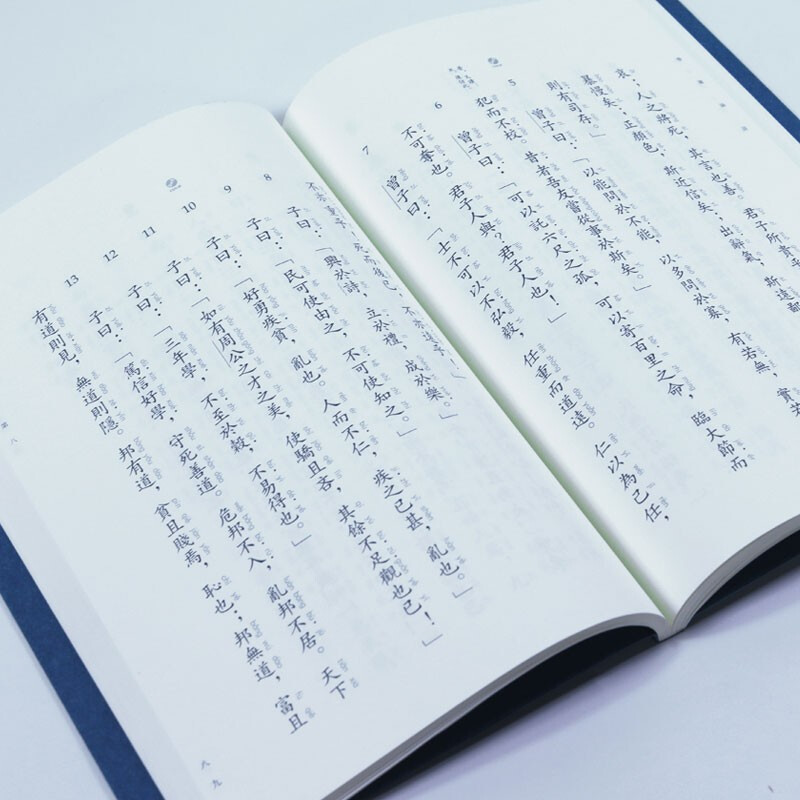 哀；人之將死，其言也善。君子所貴乎
暴慢矣；正顏色，斯近信矣；出辭氣，斯遠鄙
則有司存。」
5 曾子曰：「以能問於不能，以多問於寡，有若無，實若
犯而不校。昔者吾友嘗從事於斯矣。」
6 曾子曰：「可以託六尺之孤，可以寄百里之命，臨大節而
不可奪也。君子人與？君子人也！」
7 曾子曰：「士不可以不弘毅，任重而道遠。仁以為己任，
不亦重乎！死而後已，不亦遠乎！」
8 子曰：「興於詩，立於禮，成於樂。」
9 子曰：「民可使由之，不可使知之。」
10 子曰：「好勇疾貧，亂也。人而不仁，疾之已甚，亂也。」
11 子曰：「如有周公之才之美，使驕且吝，其餘不足觀也已！」
12 子曰：「三年學，不至於穀，不易得也。」
13 子曰：「篤信好學，守死善道。危邦不入，亂邦不居。天下
有道則見，無道則隱。邦有道，貧且賤焉，恥也；邦無道，富且
八九